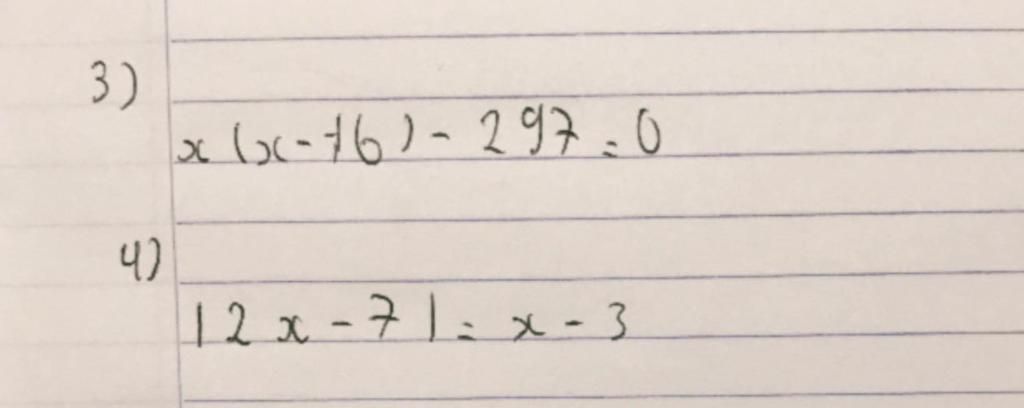 3)
x(x-16)-297=0
4)
|2x-7|=x-3